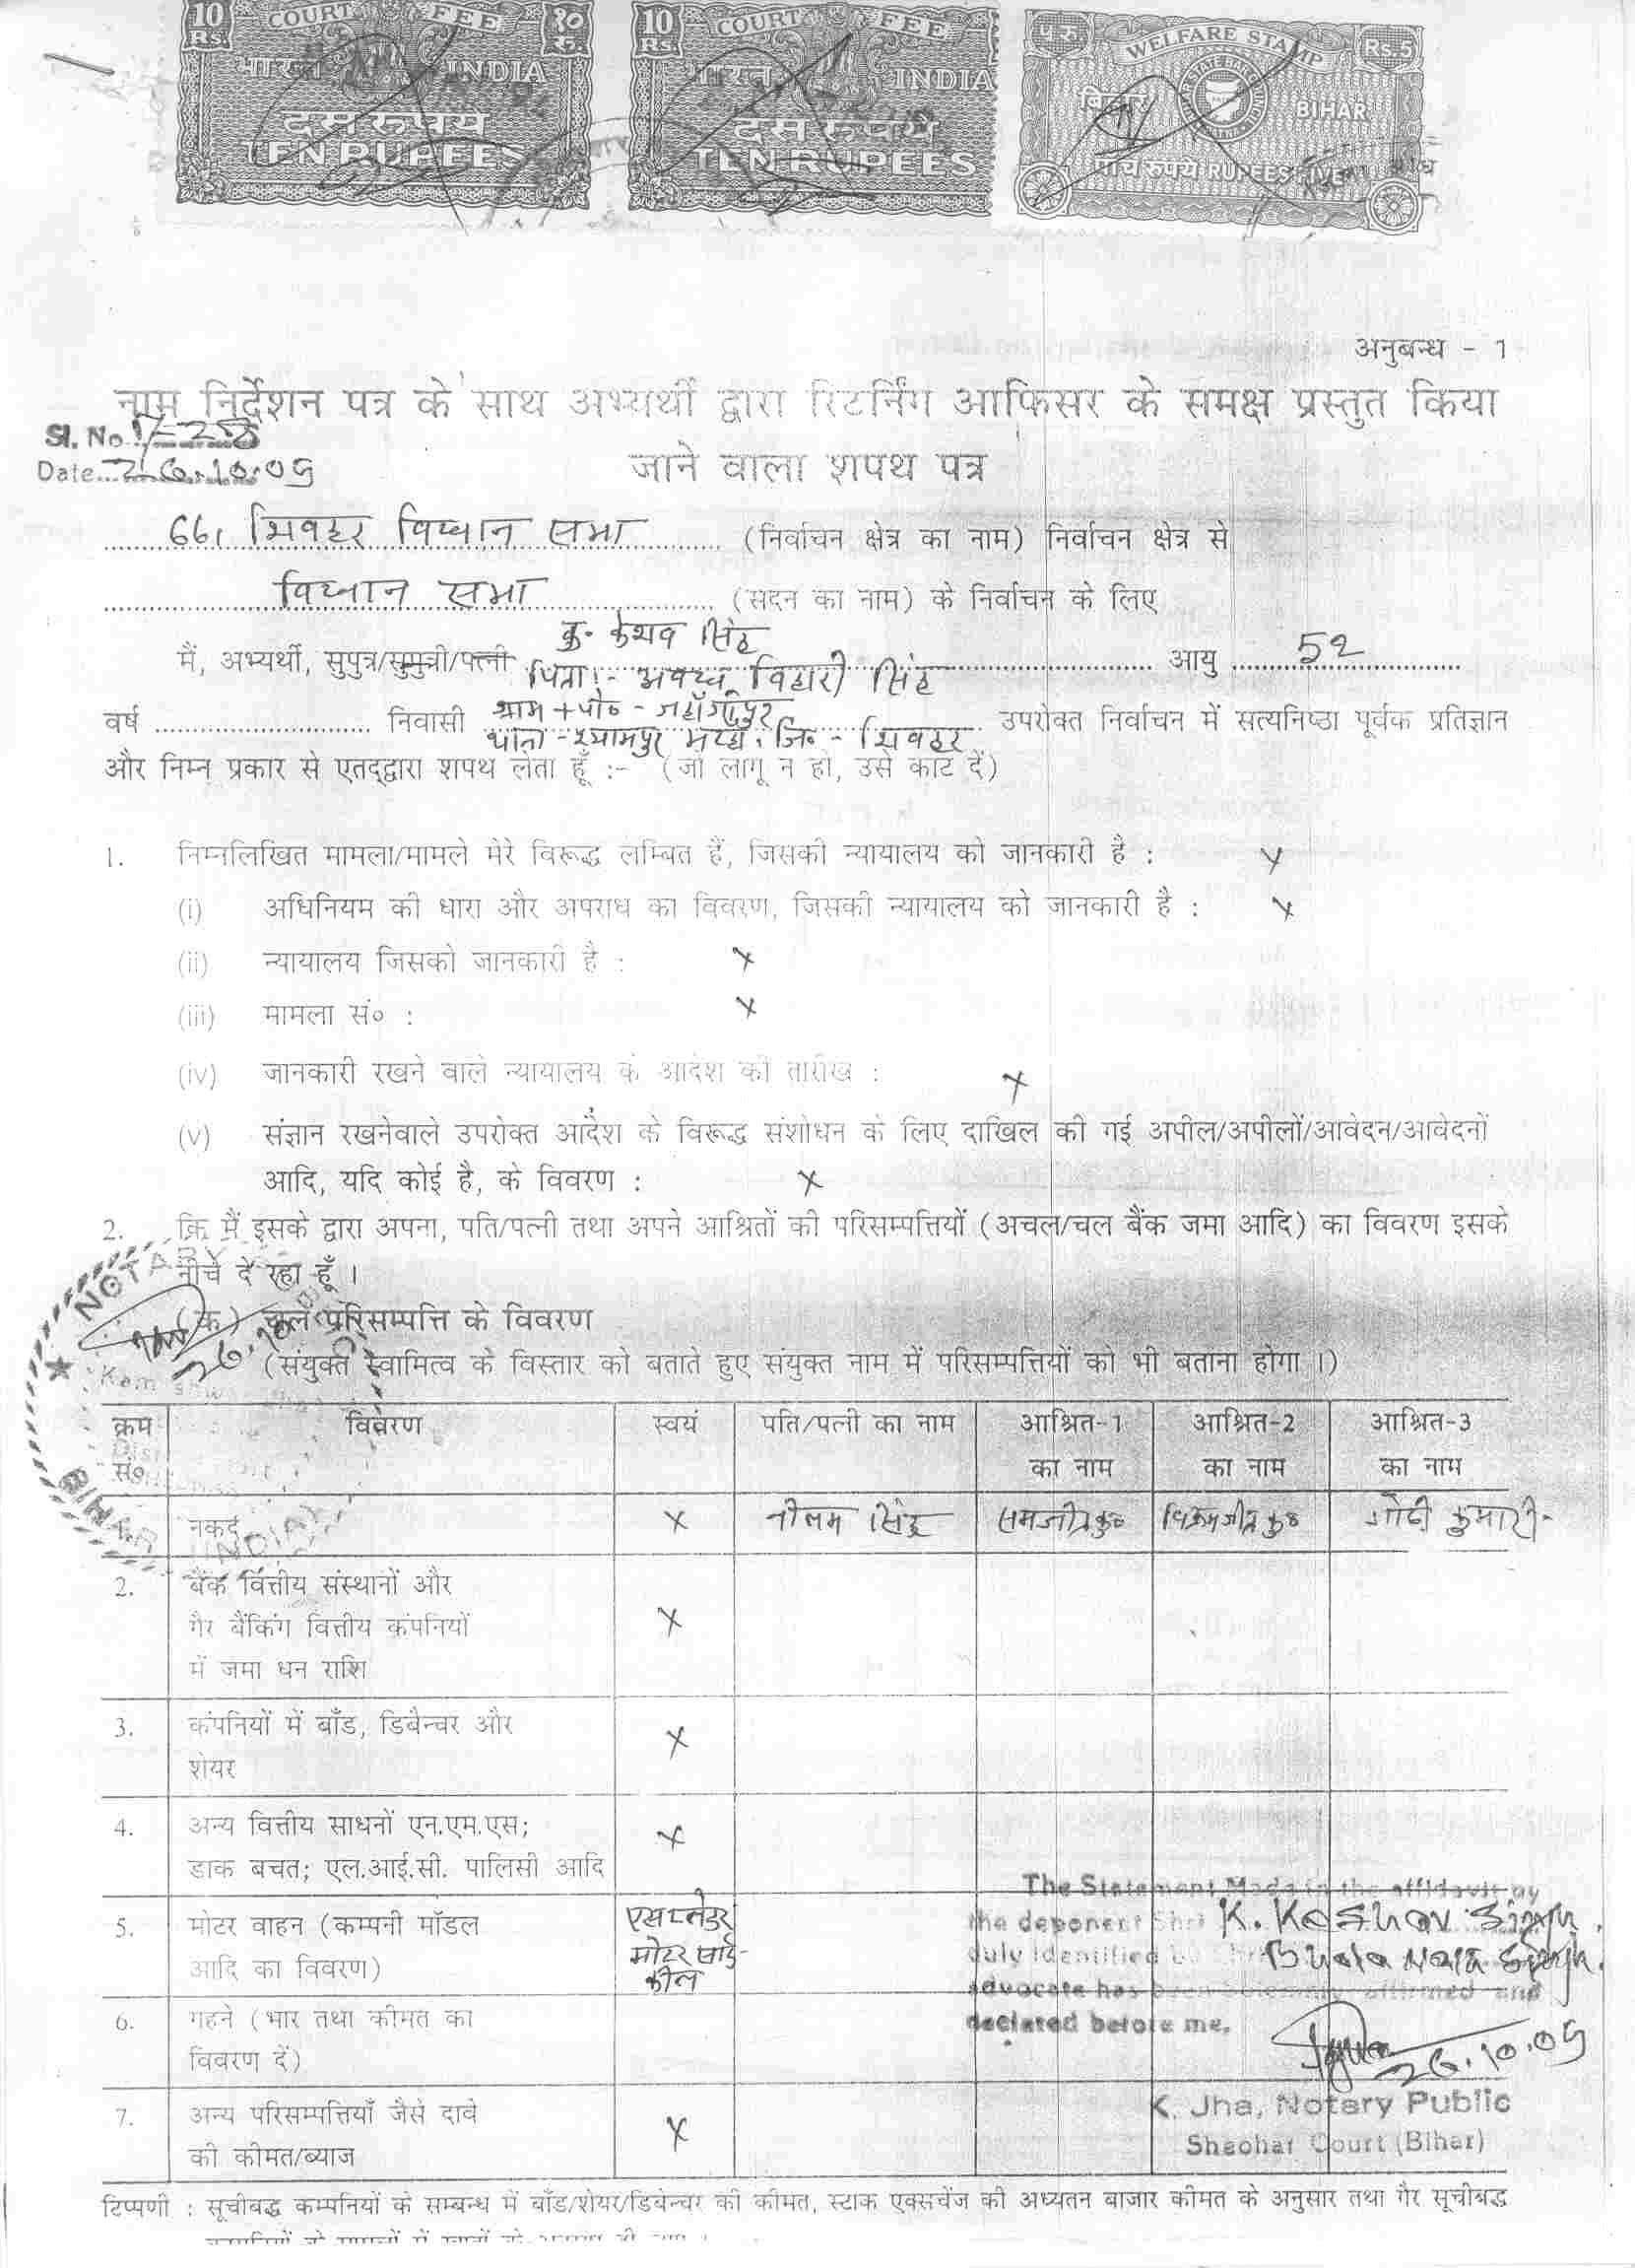 10 COURT FEE १०
Rs. रु.
भारत INDIA
दस रुपये
TEN RUPEES
10 COURT FEE
Rs.
भारत INDIA
दस रुपये
TEN RUPEES
प रु. WELFARE STAMP Rs.5
बिहार BIHAR
पाँच रुपये RUPEES FIVE
अनुबन्ध - 1
नाम निर्देशन पत्र के साथ अभ्यर्थी द्वारा रिटर्निंग आफिसर के समक्ष प्रस्तुत किया
Sl. No.
Date 26.10.05 जाने वाला शपथ पत्र
66, शिवहर विधान सभा (निर्वाचन क्षेत्र का नाम) निर्वाचन क्षेत्र से
विधान सभा (सदन का नाम) के निर्वाचन के लिए
कु. केशव सिंह
मैं, अभ्यर्थी, सुपुत्र/सुपुत्री/पत्नी पिता:- अवध बिहारी सिंह आयु 52
वर्ष निवासी ग्राम + पो० - उपरोक्त निर्वाचन में सत्यनिष्ठा पूर्वक प्रतिज्ञान
थाना - श्यामपुर जि. - शिवहर
और निम्न प्रकार से एतद्द्वारा शपथ लेता हूँ :- (जो लागू न हो, उसे काट दें)
1. निम्नलिखित मामला/मामले मेरे विरूद्ध लम्बित हैं, जिसकी न्यायालय को जानकारी है : x
(i) अधिनियम की धारा और अपराध का विवरण, जिसकी न्यायालय को जानकारी है : x
(ii) न्यायालय जिसको जानकारी है : x
(iii) मामला सं० : x
(iv) जानकारी रखने वाले न्यायालय के आदेश की तारीख : x
(v) संज्ञान रखनेवाले उपरोक्त आदेश के विरूद्ध संशोधन के लिए दाखिल की गई अपील/अपीलों/आवेदन/आवेदनों
आदि, यदि कोई है, के विवरण : x
2. कि मैं इसके द्वारा अपना, पति/पत्नी तथा अपने आश्रितों की परिसम्पत्तियों (अचल/चल बैंक जमा आदि) का विवरण इसके
नीचे दे रहा हूँ ।
NOTARY
(क) चल परिसम्पत्ति के विवरण
(संयुक्त स्वामित्व के विस्तार को बताते हुए संयुक्त नाम में परिसम्पत्तियों को भी बताना होगा ।)
क्रम सं० विवरण स्वयं पति/पत्नी का नाम आश्रित-1 का नाम आश्रित-2 का नाम आश्रित-3 का नाम
BIHAR INDIA
1. नकद x नीलम सिंह कुमारी
2. बैंक वित्तीय संस्थानों और
गैर बैंकिंग वित्तीय कंपनियों x
में जमा धन राशि
3. कंपनियों में बाँड, डिबैन्चर और
शेयर x
4. अन्य वित्तीय साधनों एन.एम.एस; x
डाक बचत; एल.आई.सी. पालिसी आदि
The Statement Made in the affidavit by
5. मोटर वाहन (कम्पनी मॉडल
आदि का विवरण)
एसप्लेंडर
मोटर साई-
कील
the deponent Shri K. Keshav Singh.
duly identified by Shri Singh.
advocate has been solemnly affirmed and
declared before me.
6. गहने (भार तथा कीमत का
विवरण दें)
26.10.05
7. अन्य परिसम्पत्तियाँ जैसे दावे
की कीमत/ब्याज x
K. Jha, Notary Public
Sheohar Court (Bihar)
टिप्पणी : सूचीबद्ध कम्पनियों के सम्बन्ध में बाँड/शेयर/डिबेन्चर की कीमत, स्टाक एक्सचेंज की अध्यतन बाजार कीमत के अनुसार तथा गैर सूचीबद्ध